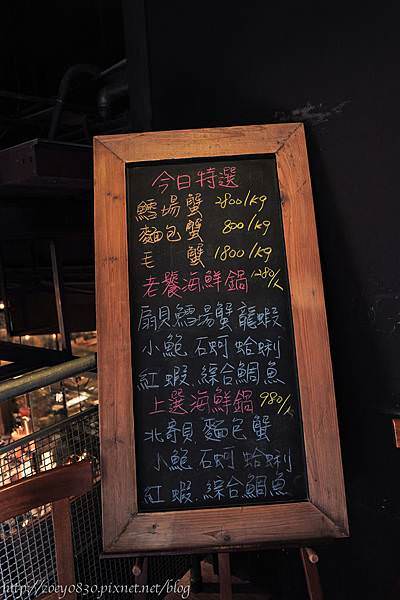 今日特選
鱈場蟹 2800/kg
麵包蟹 800/kg
毛 蟹 1800/kg
老饕海鮮鍋 1280/人
扇貝 鱈場蟹 龍蝦
小鮑 石蚵 蛤蜊
紅蝦.綜合鯛魚
上選海鮮鍋 980/人
北寄貝 麵包蟹
小鮑 石蚵 蛤蜊
紅蝦.綜合鯛魚
http://zoey0830.pixnet.net/blog